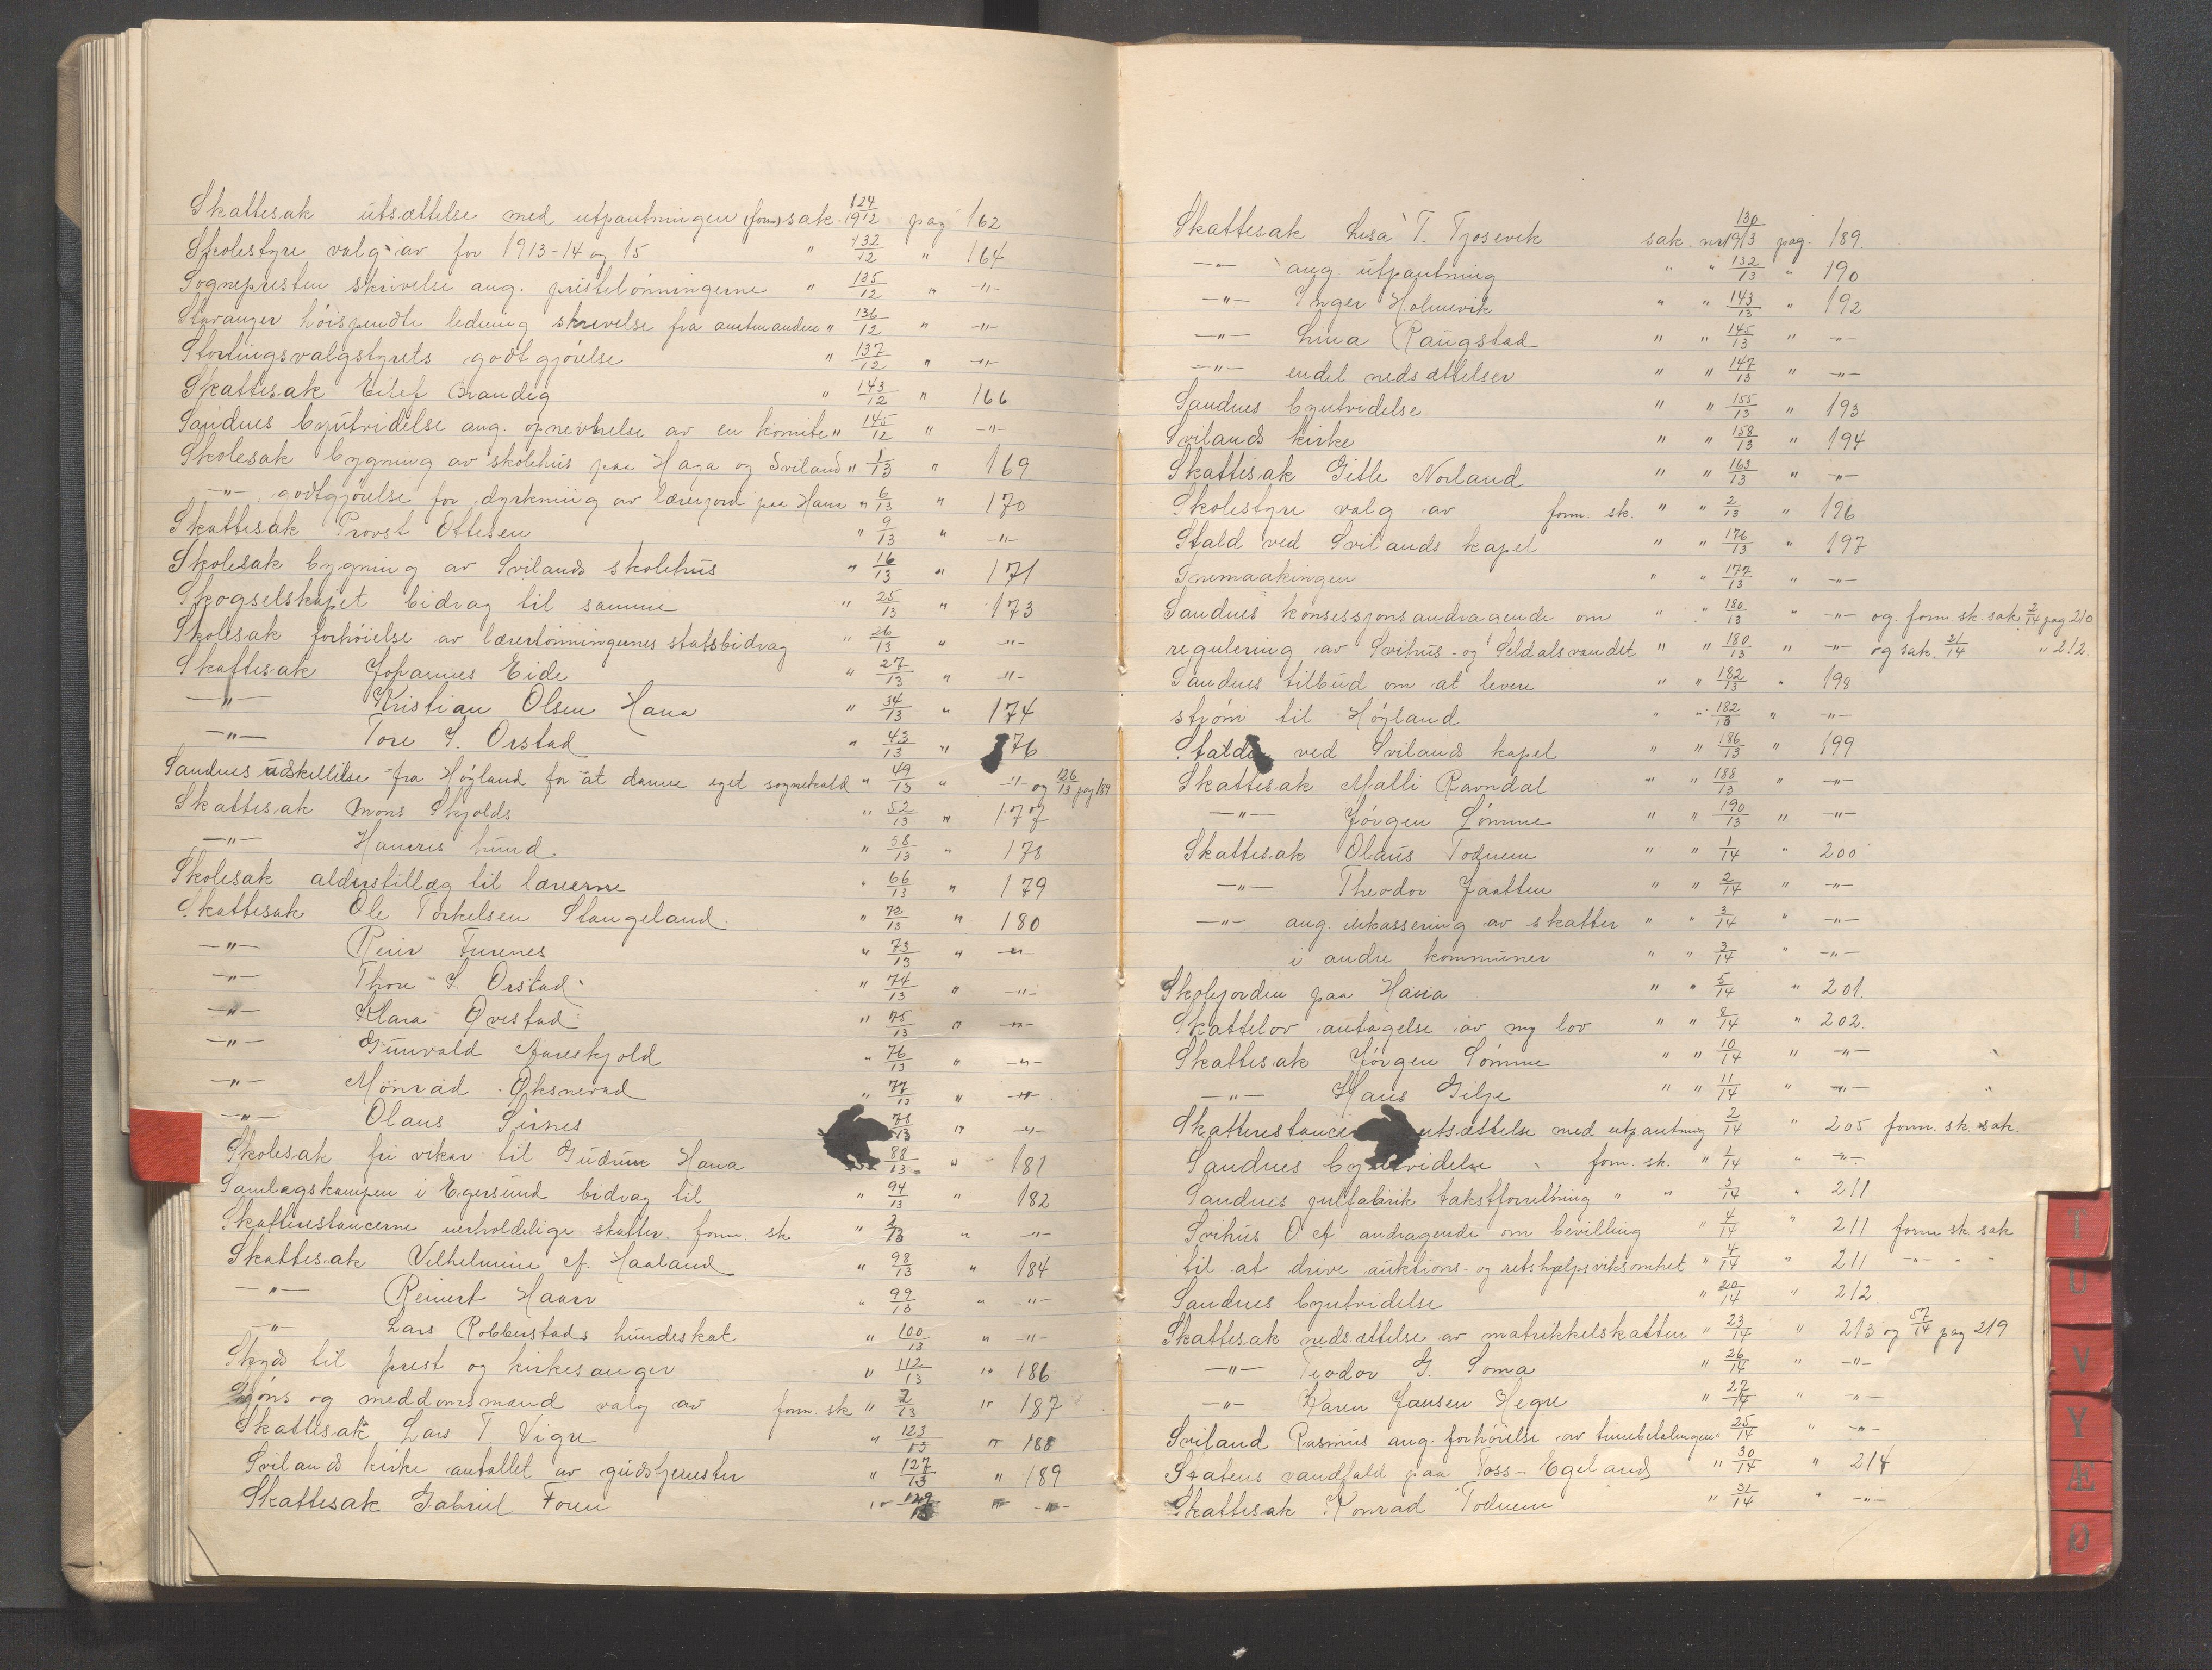 Skattesak utsættelse med utpantningen (form) sak 124/1912 pag 162
Skolestyre valg av for 1913-14 og 15 " 132/12 " 164
Sognepresten skrivelse ang. prestelönningerne " 135/12 " -"-
Stavanger höispendte ledning skrivelse fra amtmanden " 136/12 " -"-
Stortingsvalgstyrets godtgjörelse " 137/12 " -"-
Skattesak Eilef Brandeg " 143/12 " 166
Sandnes byutvidelse ang. opnevnelse av en komite " 145/12 " -"-
Skolesak bygning av skolehus paa Hana og Sviland " 1/13 " 169
-"- godtgjörelse for dyrkning av lærerjord paa Hana " 6/13 " 170
Skattesak Provst Ottesen " 9/13 " -"-
Skolesak bygning av Svilands skolehus " 16/13 " 171
Skogselskapet bidrag til samme " 25/13 " 173
Skolesak forhöielse av lærerlönningernes statsbidrag " 26/13 " -"-
Skattesak Johannes Eide " 27/13 " -"-
-"- Kristian Olsen Hana " 34/13 " 174
-"- Tore S. Orstad " 43/13 " 176
Sandnes udskillelse fra Höyland for at danne eget sognekald " 49/13 " -"- og 126/13 pag 189
Skattesak Mons Skjolds " 52/13 " 177
-"- Hannes hund " 58/13 " 178
Skolesak alderstillæg til lærerne " 66/13 " 179
Skattesak Ole Torkelsen Stangeland " 72/13 " 180
-"- Reier Furenes " 73/13 " -"-
-"- Thore S. Orstad " 74/13 " -"-
-"- Klara Qvestad " 75/13 " -"-
-"- Gunvald Aareskjold " 76/13 " -"-
-"- Monrad Øksnevad " 77/13 " -"-
-"- Olaus Sirnes 78/13 " -"-
Skolesak fri vikar til Gudrun Hana 88/13 " 181
Samlagskampen i Egersund bidrag til " 94/13 " 182
Skatterestancerne uerholdelige skatter. form. sk " 2/13 " -"-
Skattesak Vilhelmine A. Haaland " 98/13 " 184
-"- Reinert Haarr " 99/13 " -"-
-"- Lars Robberstads hundeskat " 100/13 " -"-
Skyds til prest og kirkesanger " 112/13 " 186
Skjöns og meddomsmænd valg av form. sk " 2/13 " 187
Skattesak Lars T. Vigre " 123/13 " 188
Svilands kirke antallet av gudstjenester " 127/13 " 189
Skattesak Gabriel Foren " 129/13 " -"-
Skattesak Lisa T. Tjosevik sak. nr 130/1913 pag. 189
-"- ang. utpantning " " 132/13 " 190
-"- Inger Holmevik " " 143/13 " 192
-"- Lina Raugstad " " 145/13 " -"-
-"- endel nedsættelser " " 147/13 " -"-
Sandnes byutvidelse " " 155/13 " 193
Svilands kirke " " 158/13 " 194
Skattesak Gitle Norland " " 163/13 " -"-
Skolestyre valg av form. sk. " " 2/13 " 196
Stald ved Svilands kapel " " 176/13 " 197
Snemaakingen " " 177/13 " -"-
Sandnes konsessjonsandragende om " " 180/13 " -"- og form sk. sak 2/14 pag 210
regulering av Svihus- og Seldalsvandet " " 180/13 " -"- og sak. 21/14 " 212.
Sandnes tilbud om at levere " " 182/13 " 198
ström til Höyland " " 182/13 " -"-
Stalden ved Svilands kapel " " 186/13 " 199
Skattesak Malli Ravndal " " 188/13 " -"-
-"- Jörgen Sömme " " 190/13 " -"-
Skattesak Olaus Todnem " " 1/14 " 200
-"- Theodor Jaatten " " 2/14 " -"-
-"- ang. inkassering av skatter " " 3/14 " -"-
i andre kommuner " " 3/14 " -"-
Skolejorden paa Hana " " 5/14 " 201.
Skattelov antagelse av ny lov " " 8/14 " 202.
Skattesak Jörgen Sömme " " 10/14 " -"-
-"- Hans Gilje " " 11/14 " -"-
Skatterestance utsættelse med utpantning 2/14 " 205 form. sk. sak.
Sandnes byutvidelse form. sk. " 1/14 " -"-
Sandnes uldfabrik takstforretning " " 3/14 " 211
Svihus O. A. andragende om bevilling " 4/14 " 211 form sk sak
til at drive auktions- og retshjelpsviksomhet " 4/14 " 211 -"- "
Sandnes byutvidelse " 20/14 " 212.
Skattesak nedsættelse av matrikkelskatten " 23/14 " 213 og 57/14 pag 219
-"- Teodor G. Soma " 26/14 " -"-
-"- Karen Jansen Hegre " 27/14 " -"-
Sviland Rasmus ang. forhöielse av timebetalingen " 25/14 " -"-
Statens vandfald paa Foss-Egeland " 30/14 " 214
Skattesak Konrad Todnem " 31/14 " -"-
T
U
V
Y
Æ
Ø